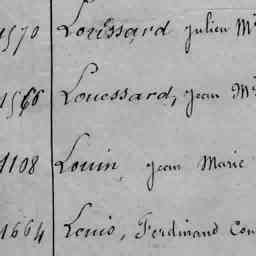 1570 Louissard Julien M
1566 Louessard, Jean M
1108 Louin, Jean Marie
1664 Louis, Ferdinand Con